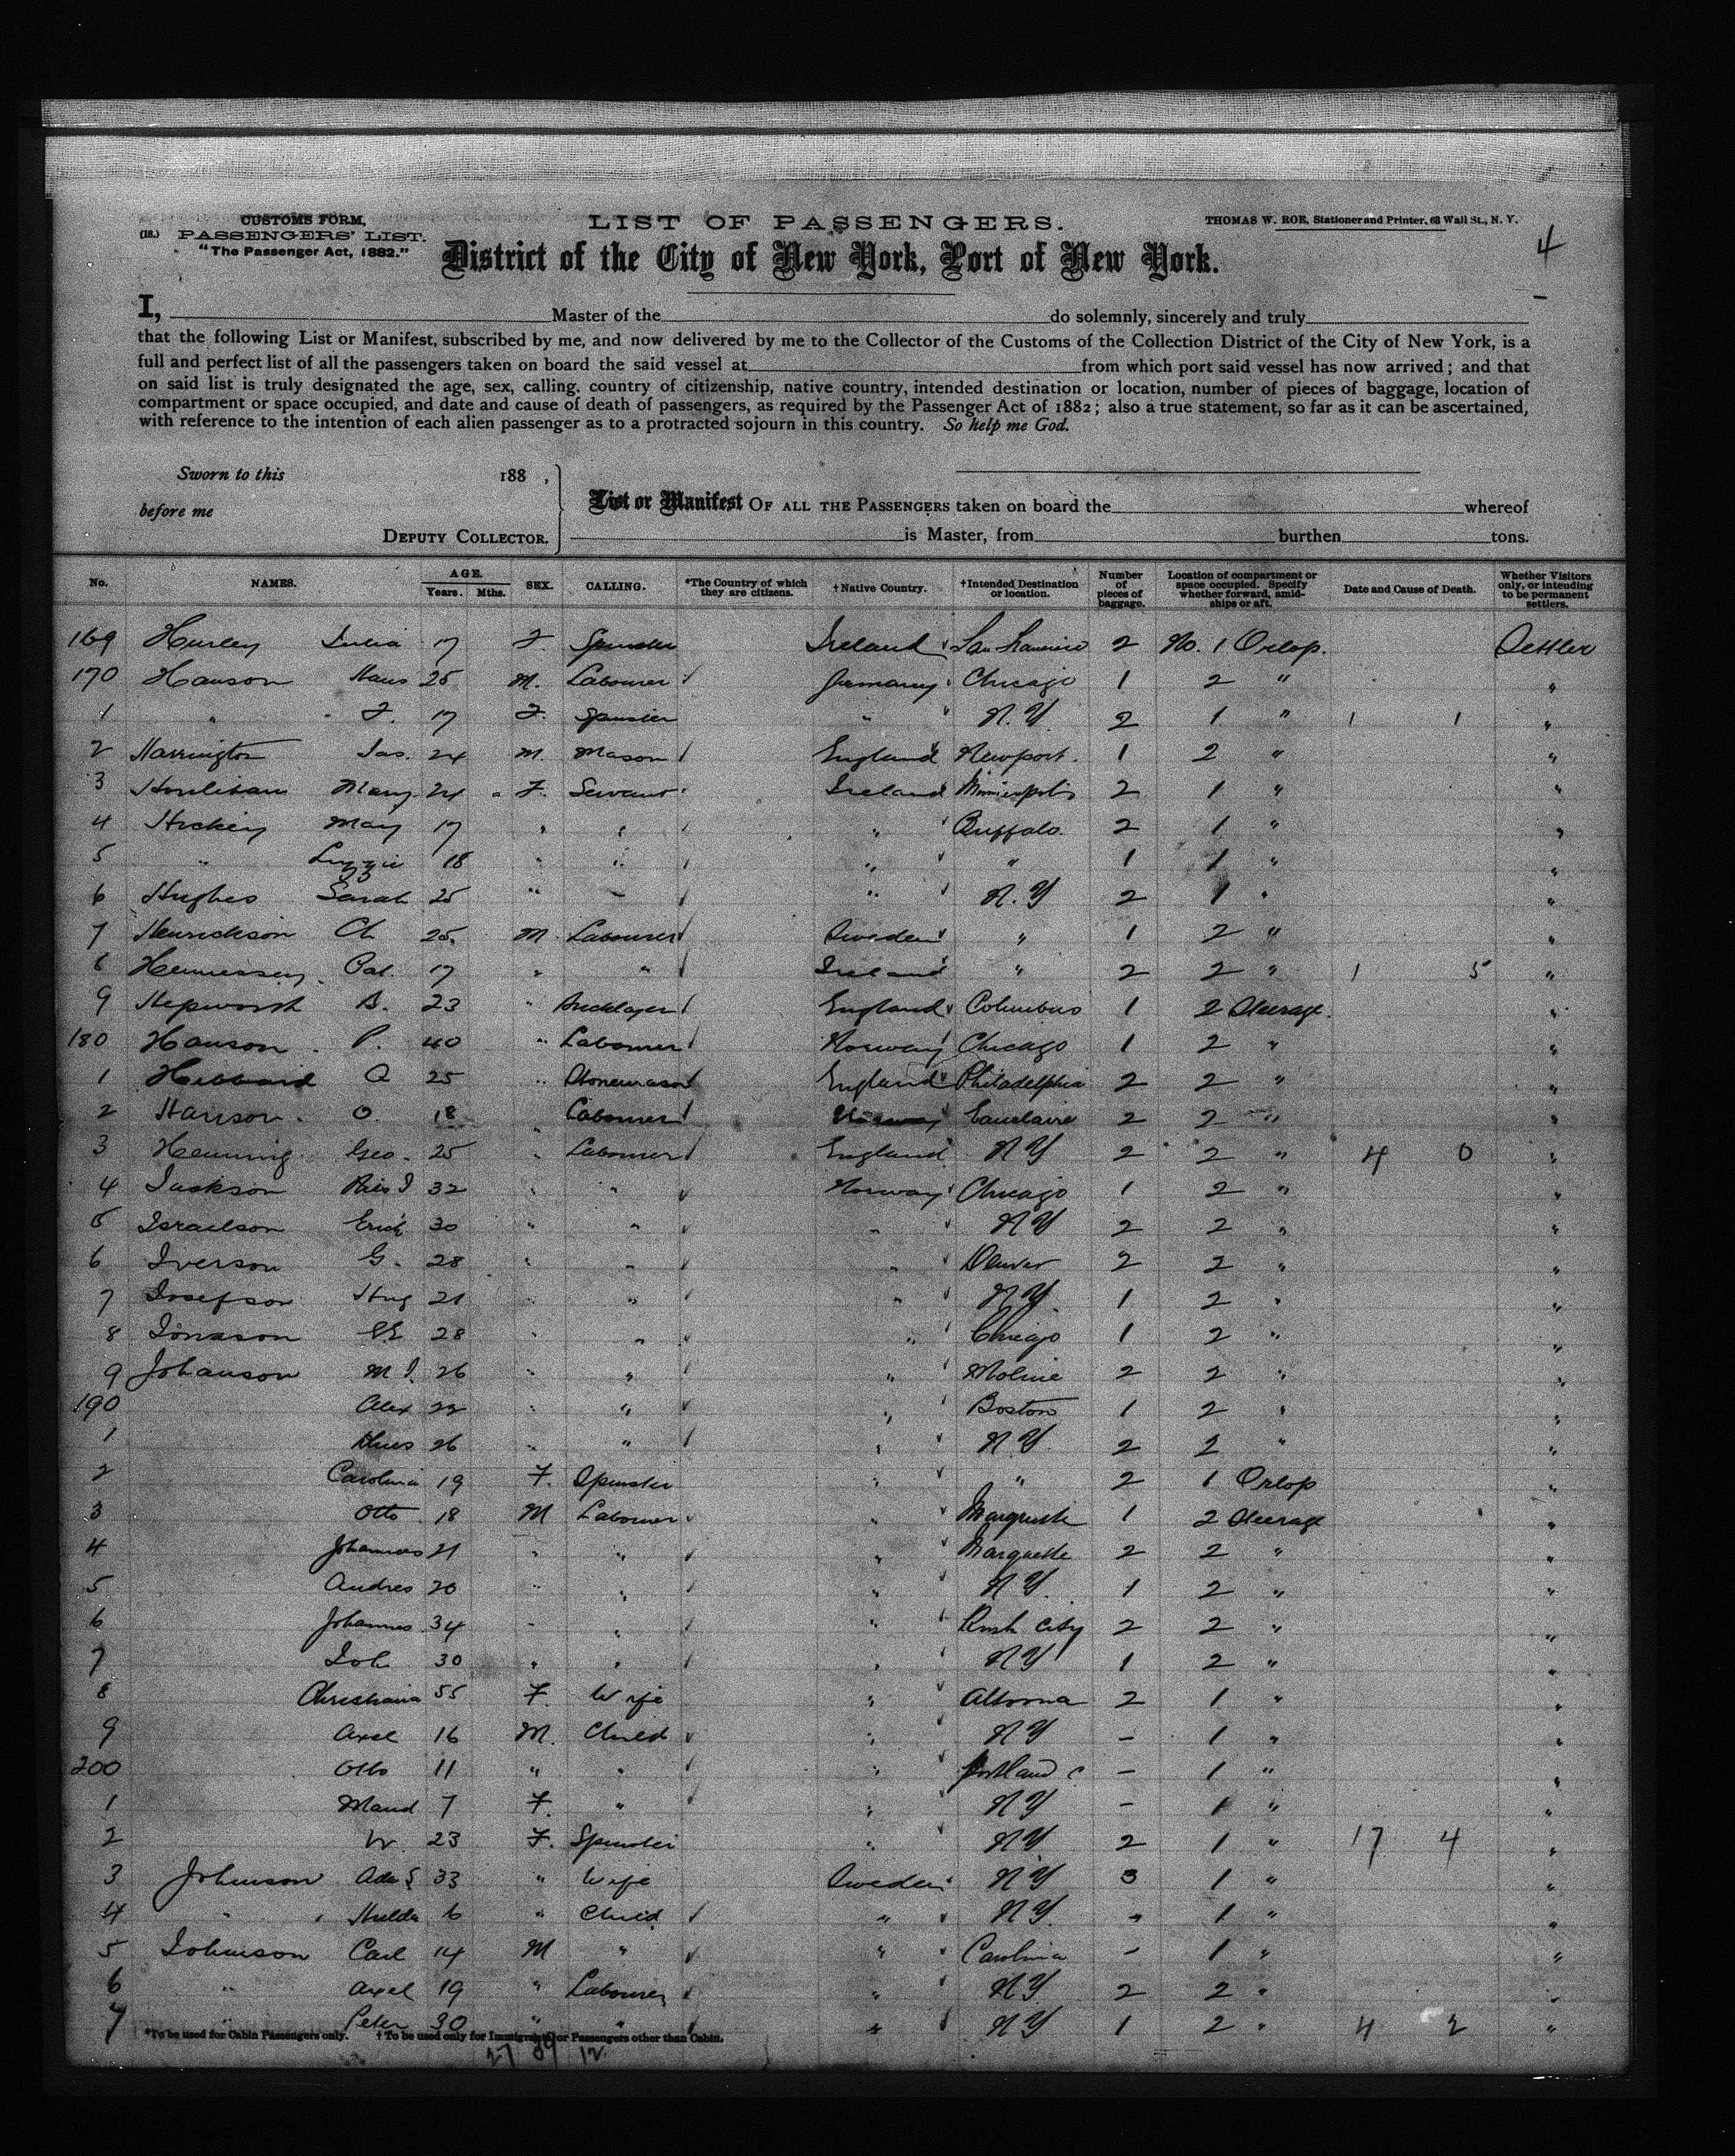 CUSTOMS FORM.
(18.) PASSENGERS' LIST.
"The Passenger Act, 1882."
LIST OF PASSENGERS.
THOMAS W. ROE, Stationer and Printer, 63 Wall St., N. Y.
4
District of the City of New York, Port of New York.
I, Master of the do solemnly, sincerely and truly
that the following List or Manifest, subscribed by me, and now delivered by me to the Collector of the Customs of the Collection District of the City of New York, is a
full and perfect list of all the passengers taken on board the said vessel at from which port said vessel has now arrived; and that
on said list is truly designated the age, sex, calling, country of citizenship, native country, intended destination or location, number of pieces of baggage, location of
compartment or space occupied, and date and cause of death of passengers, as required by the Passenger Act of 1882; also a true statement, so far as it can be ascertained,
with reference to the intention of each alien passenger as to a protracted sojourn in this country. So help me God.
Sworn to this 188 ,
before me
DEPUTY COLLECTOR.
List or Manifest OF ALL THE PASSENGERS taken on board the whereof
is Master, from burthen tons.
No. NAMES. AGE. Years. Mths. SEX. CALLING. *The Country of which they are citizens. †Native Country. †Intended Destination or location. Number of pieces of baggage. Location of compartment or space occupied. Specify whether forward, amidships or aft. Date and Cause of Death. Whether Visitors only, or intending to be permanent settlers.
169 Hurley Julia 17 F. Spinster Ireland San Francisco 2 No. 1 Orlop. Settler
170 Hanson Hans 25 M. Labourer Germany Chicago 1 2 " "
1 " F. 17 F. Spinster " N.Y 2 1 " 1 1 "
2 Harrington Jas. 24 M. Mason England Newport. 1 2 " "
3 Houlihan Mary 24 F. Servant Ireland Minneapolis 2 1 " "
4 Hickey Mary 17 " " " Buffalo. 2 1 " "
5 " Lizzie 18 " " " " 1 1 " "
6 Hughes Sarah 25 " " " N.Y 2 1 " "
7 Henrickson Ch 25. M Labourer Sweden " 1 2 " "
8 Hennessey Pat. 17 " " Ireland " 2 2 " 1 5 "
9 Hepworth B. 23 " Bricklayer England Columbus 1 2 Steerage. "
180 Hanson P. 40 " Labourer Norway Chicago 1 2 " "
1 Hebbard 25 " Stonemason England Philadelphia 2 2 " "
2 Hanson. O. 18 Labourer Norway Eauclaire 2 2 " "
3 Henning Geo. 25 " Labourer England NY 2 2 " 4 0 "
4 Jackson 32 " " Norway Chicago 1 2 " "
5 Israelson Erick 30 " " " NY 2 2 " "
6 Iverson G. 28 " " " Denver 2 2 " "
7 Josefson 21 " " " NY 1 2 " "
8 Jonason 28 " " " Chicago 1 2 " "
9 Johanson 26 " " " Moline 2 2 " "
190 Alex 22 " " " Boston 1 2 " "
1 26 " " " NY 2 2 " "
2 Carolina 19 F. Spinster " " 2 1 Orlop "
3 Otto 18 M Labourer " Marquette 1 2 Steerage "
4 Johannes 21 " " " Marquette 2 2 " "
5 Andres 20 " " " NY 1 2 " "
6 Johannes 34 " " " Rush City 2 2 " "
7 Joh 30 " " " NY 1 2 " "
8 Christiana 55 F. Wife " Altoona 2 1 " "
9 Axel 16 M. Child " NY – 1 " "
200 Otto 11 " " " Portland – 1 " "
1 Maud 7 F. " " NY – 1 " "
2 W. 23 F. Spinster " NY 2 1 " 17 4 "
3 Johnson Ada S 33 " Wife Sweden NY 3 1 " "
4 " Hulda 6 " Child " NY – 1 " "
5 Johnson Carl 14 M " " Carolina – 1 " "
6 " Axel 19 " Labourer " NY 2 2 " "
7 " Peter 30 " " " NY 1 2 " 4 2 "
*To be used for Cabin Passengers only. †To be used only for Immigrants or Passengers other than Cabin.
27 12